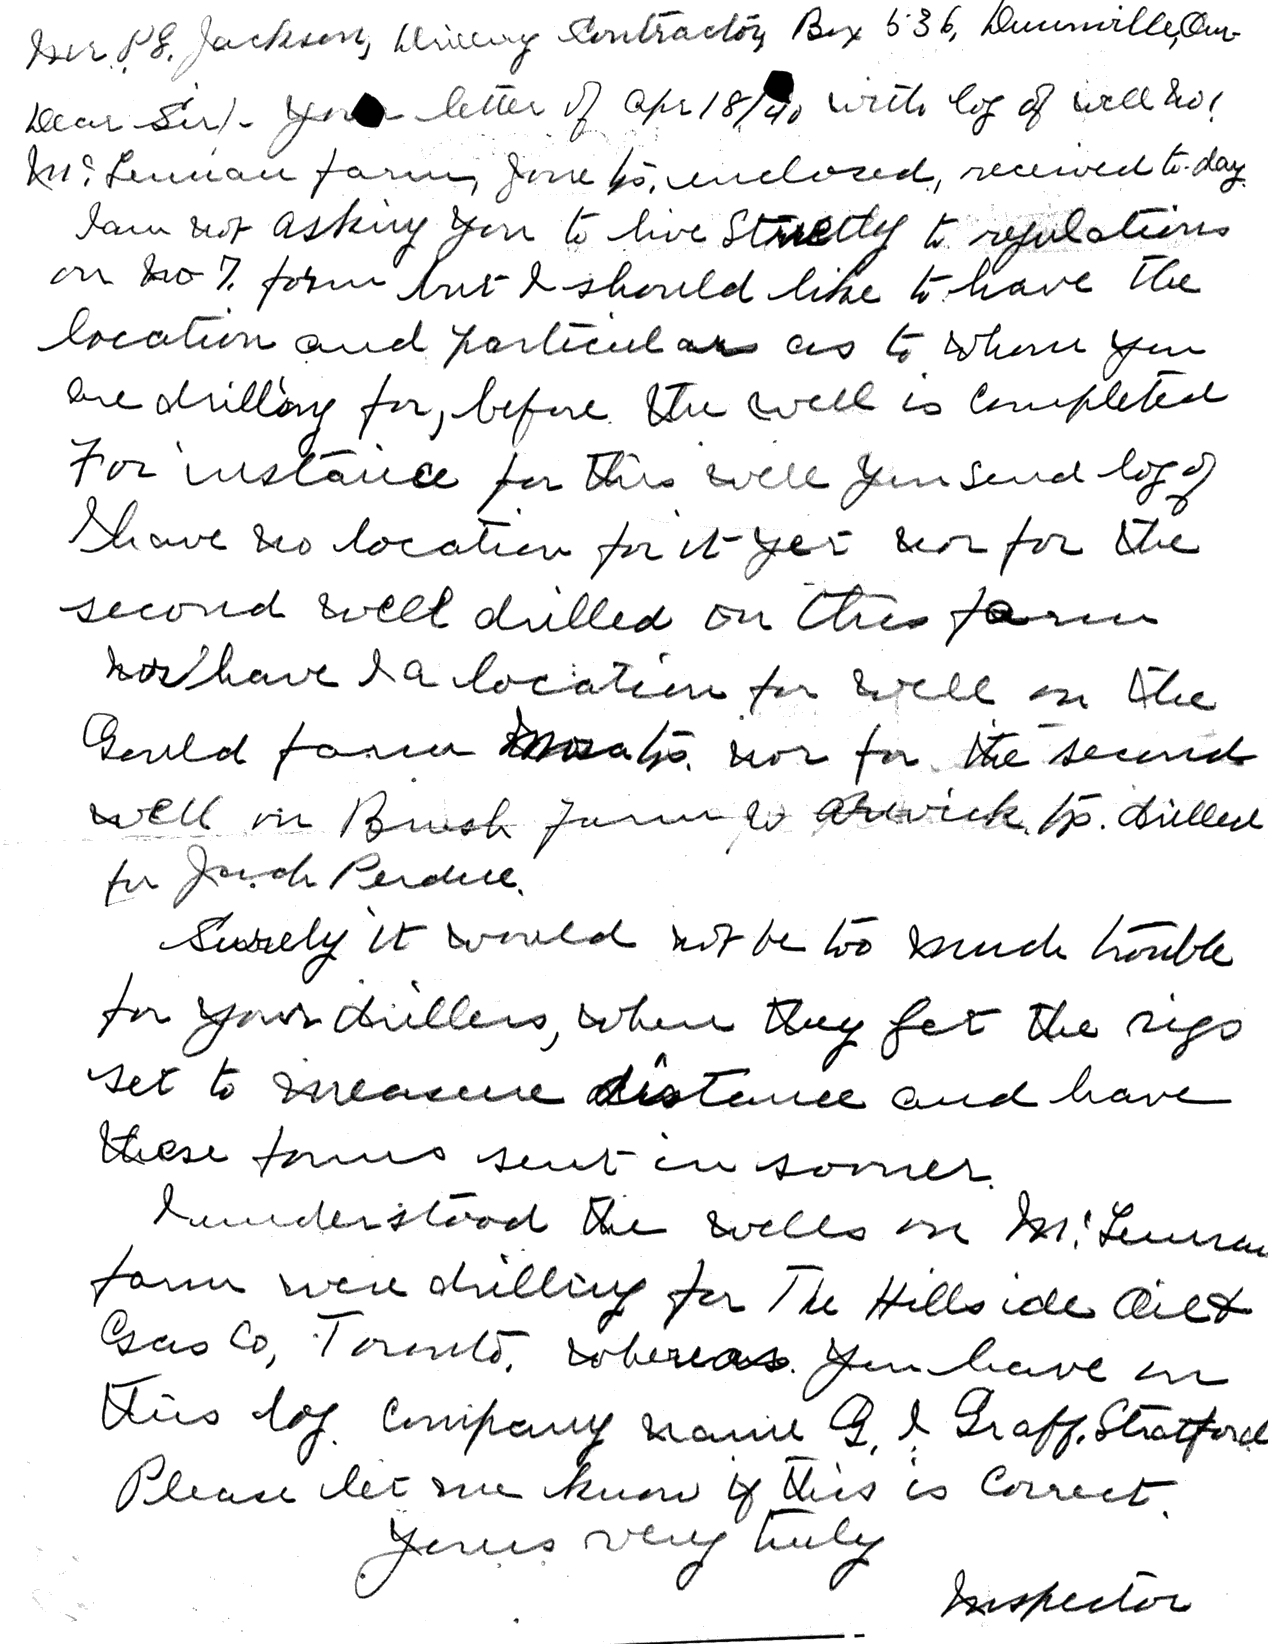 Mr. P.S. Jackson, Drilling Contractor, Box 536, Dunnville, Ont.
Dear Sir/- Your letter of Apr 18/40 with log of well No 1
McLennan farm, tp. enclosed, received to-day.
I am not asking you to live strictly to regulations
on No 7. form but I should like to have the
location and particulars as to whom you
are drilling for, before the well is completed
For instance for this well you send log of
I have no location for it yet nor for the
second well drilled on this farm
nor have I a location for well on the
Gould farm Mosa tp. nor for the second
well on Brush farm Warwick tp. drilled
for Jack Perdue.
Surely it would not be too much trouble
for your drillers, when they get the rigs
set to measure distance and have
these forms sent in sooner.
I understood the wells on McLennan
farm were drilling for The Hillside Oil &
Gas Co, Toronto, whereas you have on
this log company name G. I. Graff, Stratford
Please let me know if this is correct.
Yours very truly
Inspector